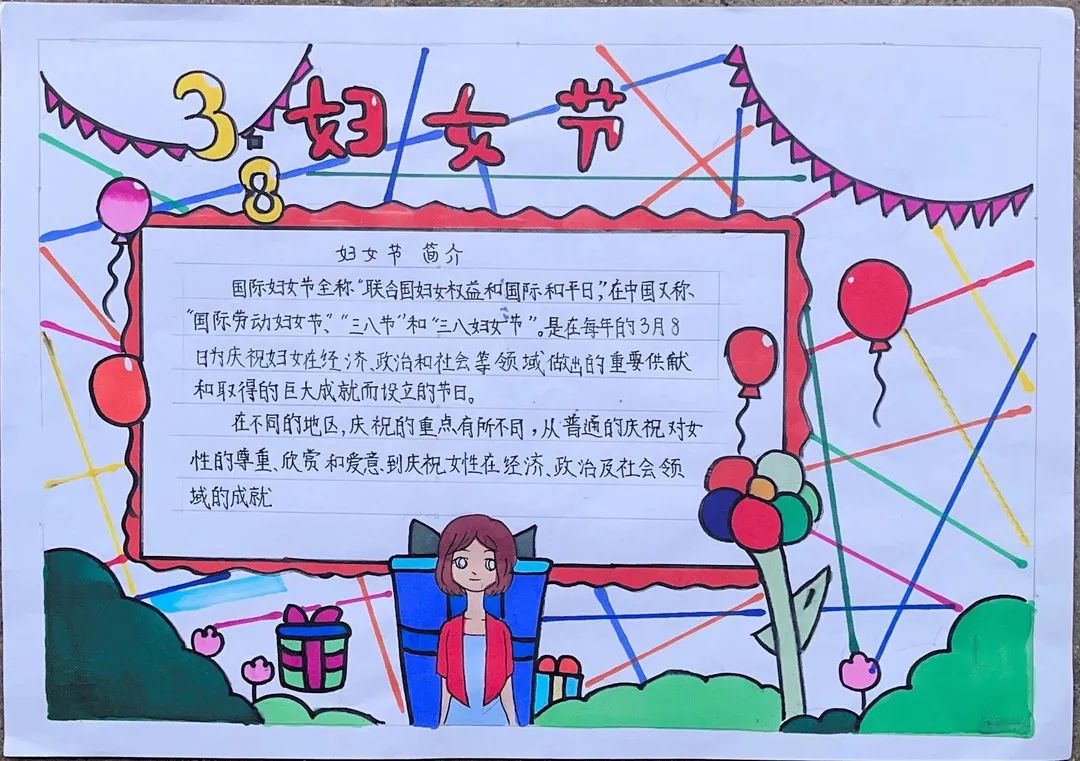 3·8 妇女节
妇女节 简介
国际妇女节全称“联合国妇女权益和国际和平日”,在中国又称、
“国际劳动妇女节”、“三八节”和“三八妇女节”。是在每年的3月8
日为庆祝妇女在经济、政治和社会等领域做出的重要供献
和取得的巨大成就而设立的节日。
在不同的地区,庆祝的重点有所不同,从普通的庆祝对女
性的尊重、欣赏和爱意、到庆祝女性在经济、政治及社会领
域的成就